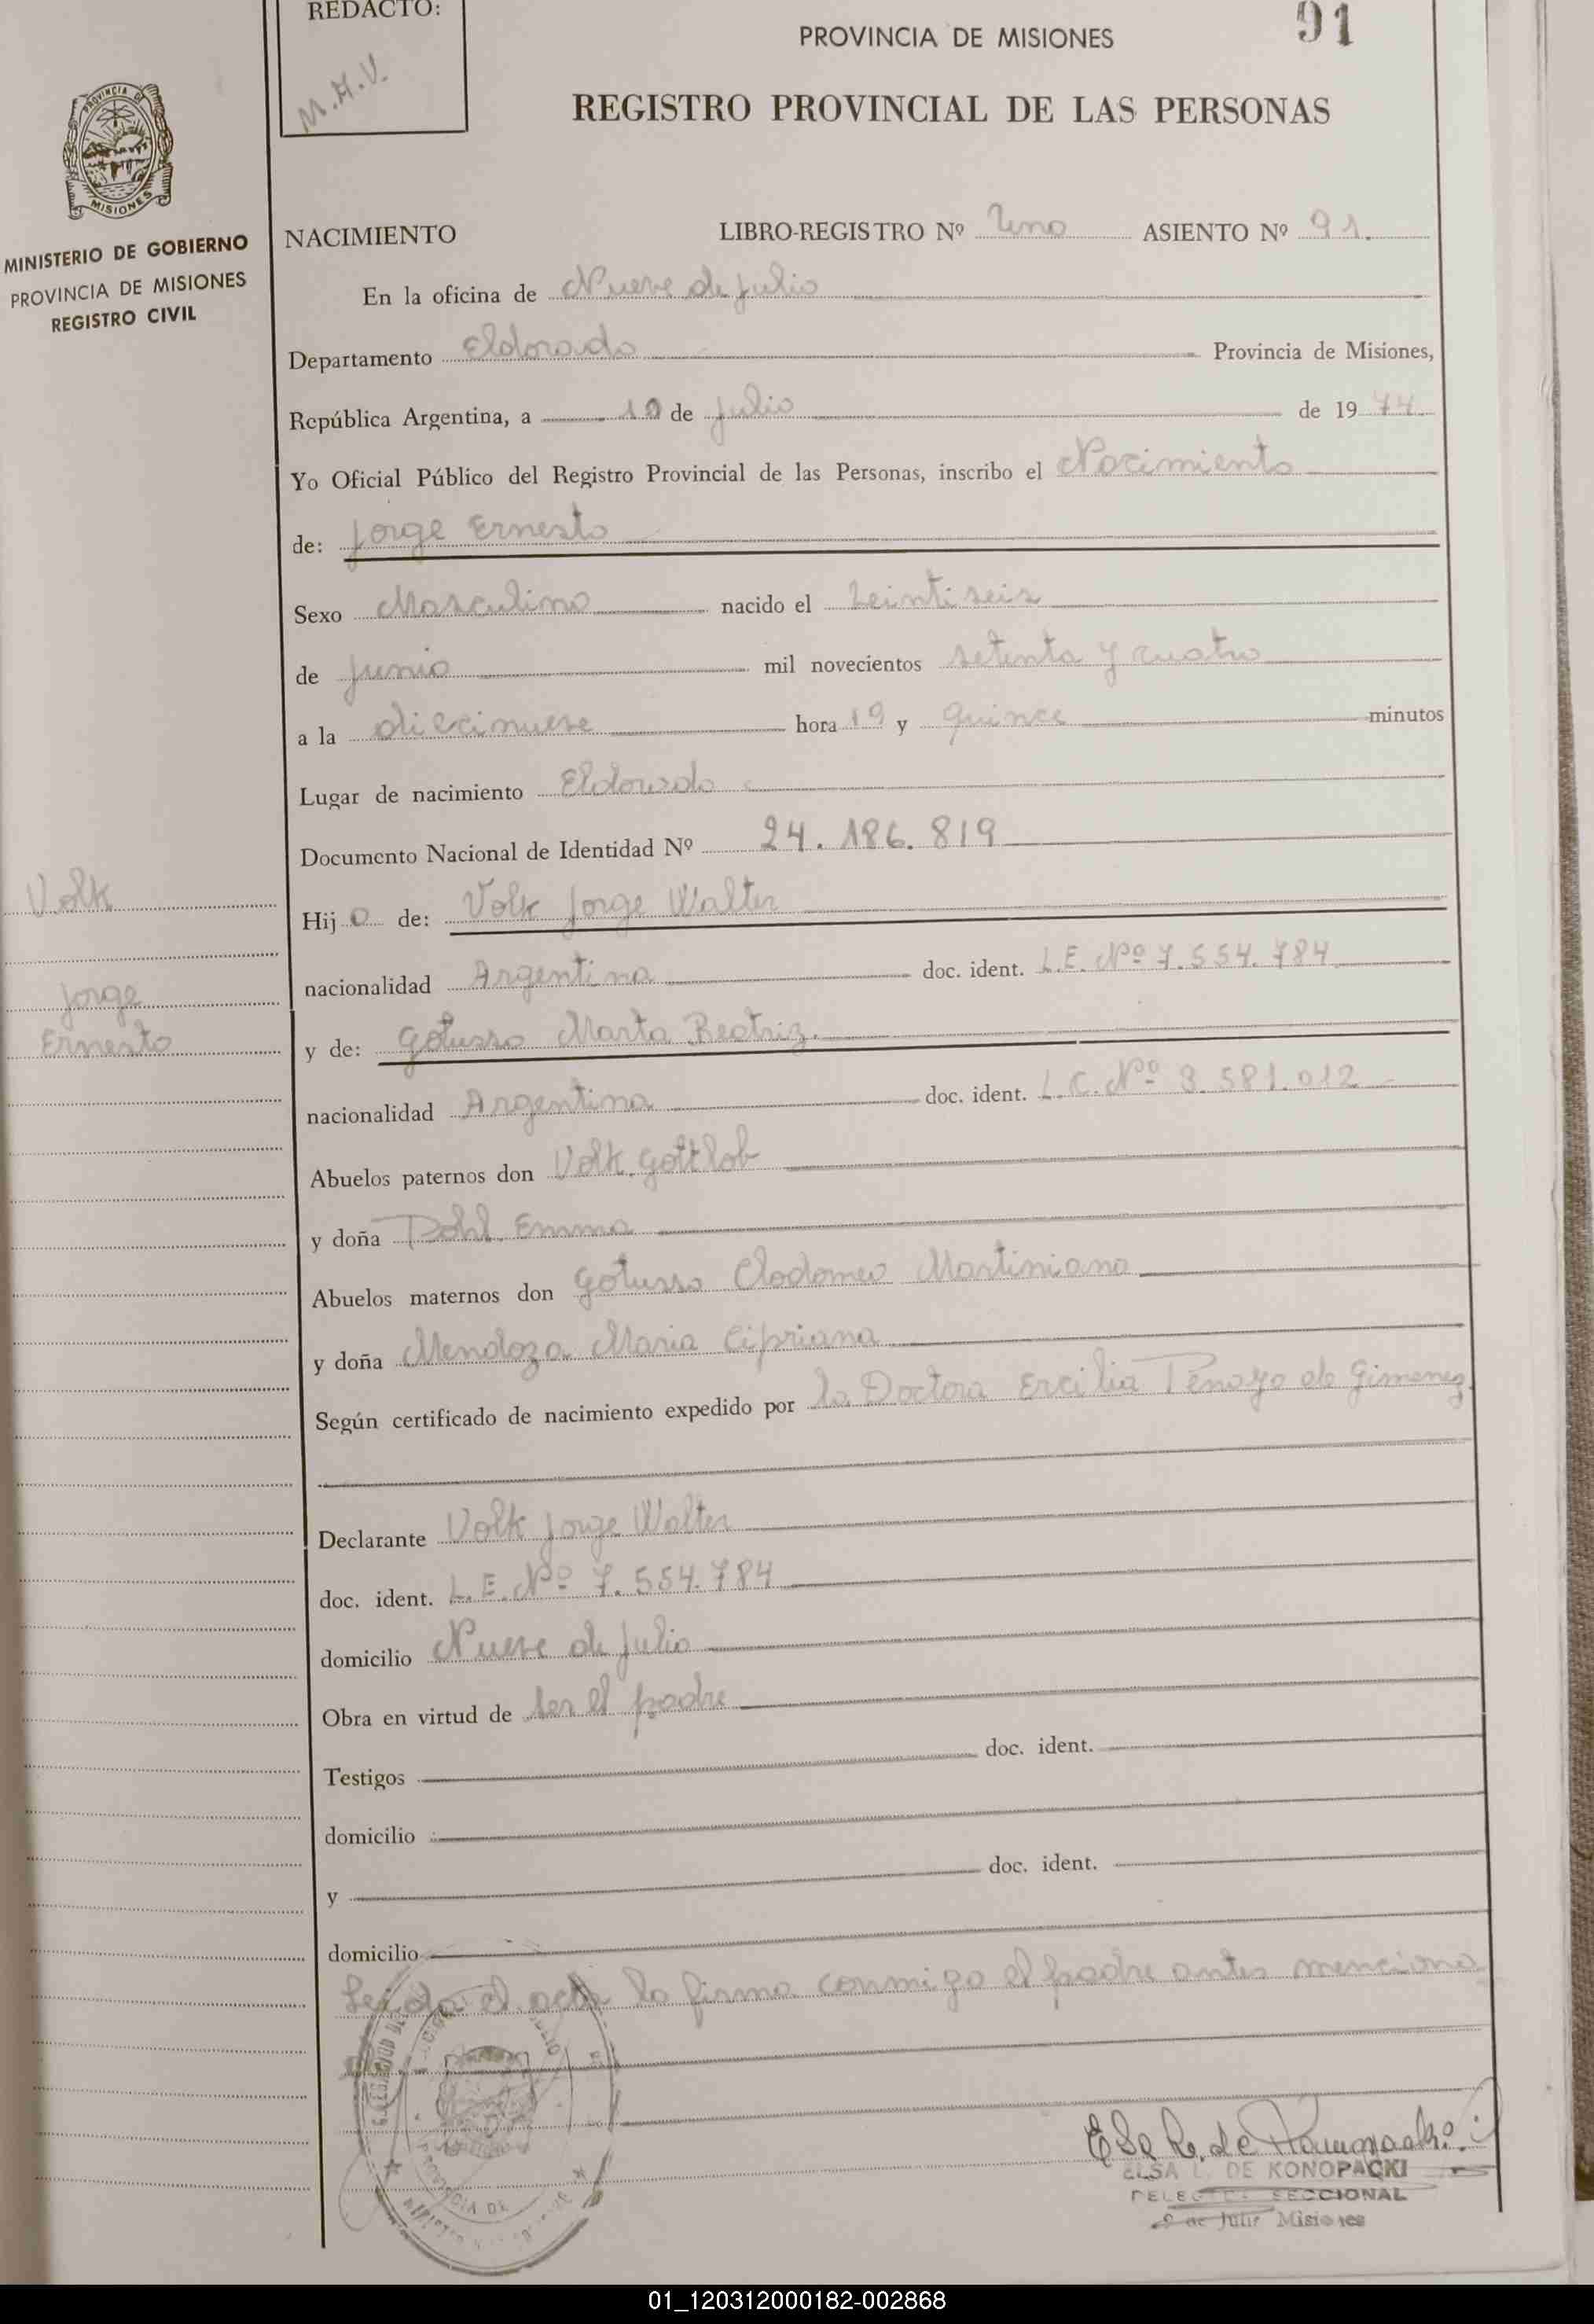 REDACTO:
M.A.V.
PROVINCIA DE MISIONES
91
REGISTRO PROVINCIAL DE LAS PERSONAS
PROVINCIA DE
MISIONES
MINISTERIO DE GOBIERNO
PROVINCIA DE MISIONES
REGISTRO CIVIL
NACIMIENTO LIBRO-REGISTRO Nº Uno ASIENTO Nº 91.
En la oficina de Nueve de Julio
Departamento Eldorado Provincia de Misiones,
República Argentina, a 10 de Julio de 1974
Yo Oficial Público del Registro Provincial de las Personas, inscribo el Nacimiento
de: Jorge Ernesto
Sexo Masculino nacido el Veintiseis
de Junio mil novecientos setenta y cuatro
a la diecinueve hora 19 y quince minutos
Lugar de nacimiento Eldorado
Documento Nacional de Identidad Nº 24.186.819
Volk
Hijo de: Volk Jorge Walter
nacionalidad Argentina doc. ident. L.E. Nº 7.554.784
Jorge
Ernesto
y de: Gotusso Marta Beatriz.
nacionalidad Argentina doc. ident. L.C. Nº 3.581.012
Abuelos paternos don Volk, Gottlob
y doña Dohl, Emma
Abuelos maternos don Gotusso Clodomeo Martiniano
y doña Mendoza Maria Cipriana
Según certificado de nacimiento expedido por la Doctora Ercilia Penayo de Gimenez.
Declarante Volk Jorge Walter
doc. ident. L.E. Nº 7.554.784
domicilio Nueve de Julio
Obra en virtud de ser el padre
Testigos doc. ident.
domicilio
y doc. ident.
domicilio
Leida el acta la firma conmigo el padre antes menciona
do
PROVINCIA DE
Elsa L. de Konopacki
ELSA L. DE KONOPACKI
DELEGADA SECCIONAL
9 de Julio Misiones
01_120312000182-002868